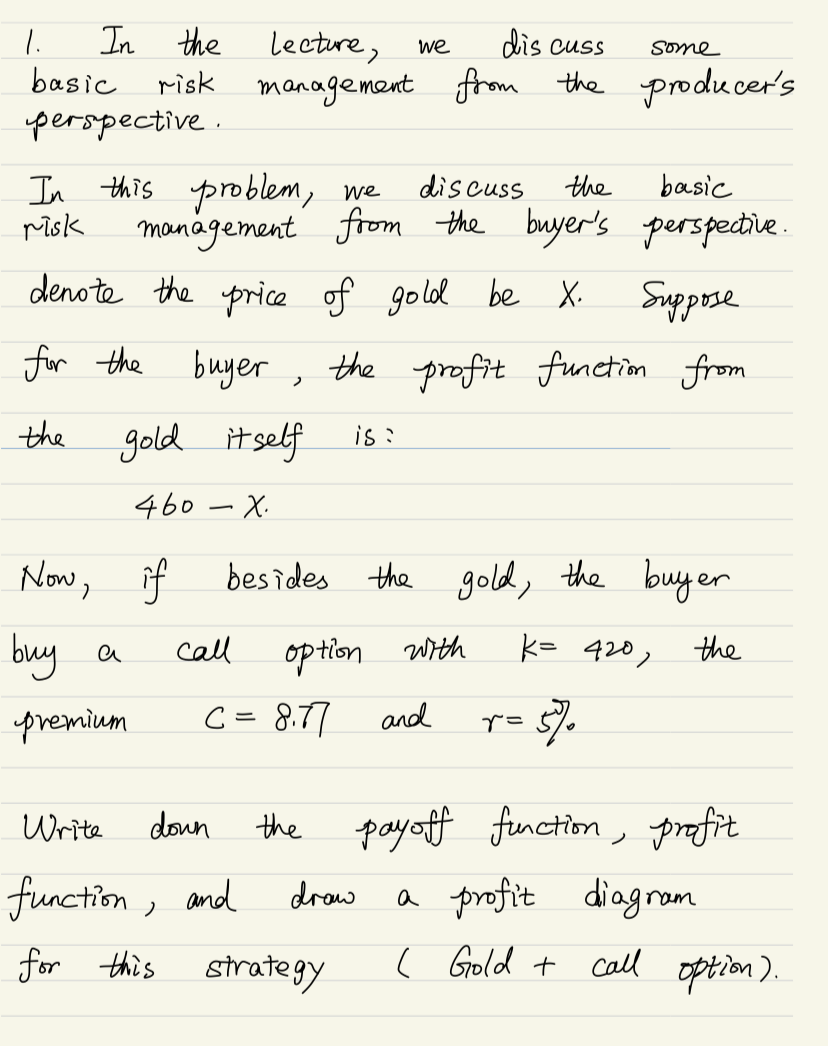 1. In the lecture, we discuss some
basic risk management from the producer's
perspective.
In this problem, we discuss the basic
risk management from the buyer's perspective.
denote the price of gold be X. Suppose
for the buyer, the profit function from
the gold itself is:
460 - X.
Now, if besides the gold, the buyer
buy a call option with k= 420, the
premium C = 8.77 and r= 5%
Write down the payoff function, profit
function, and draw a profit diagram
for this strategy ( Gold + call option).